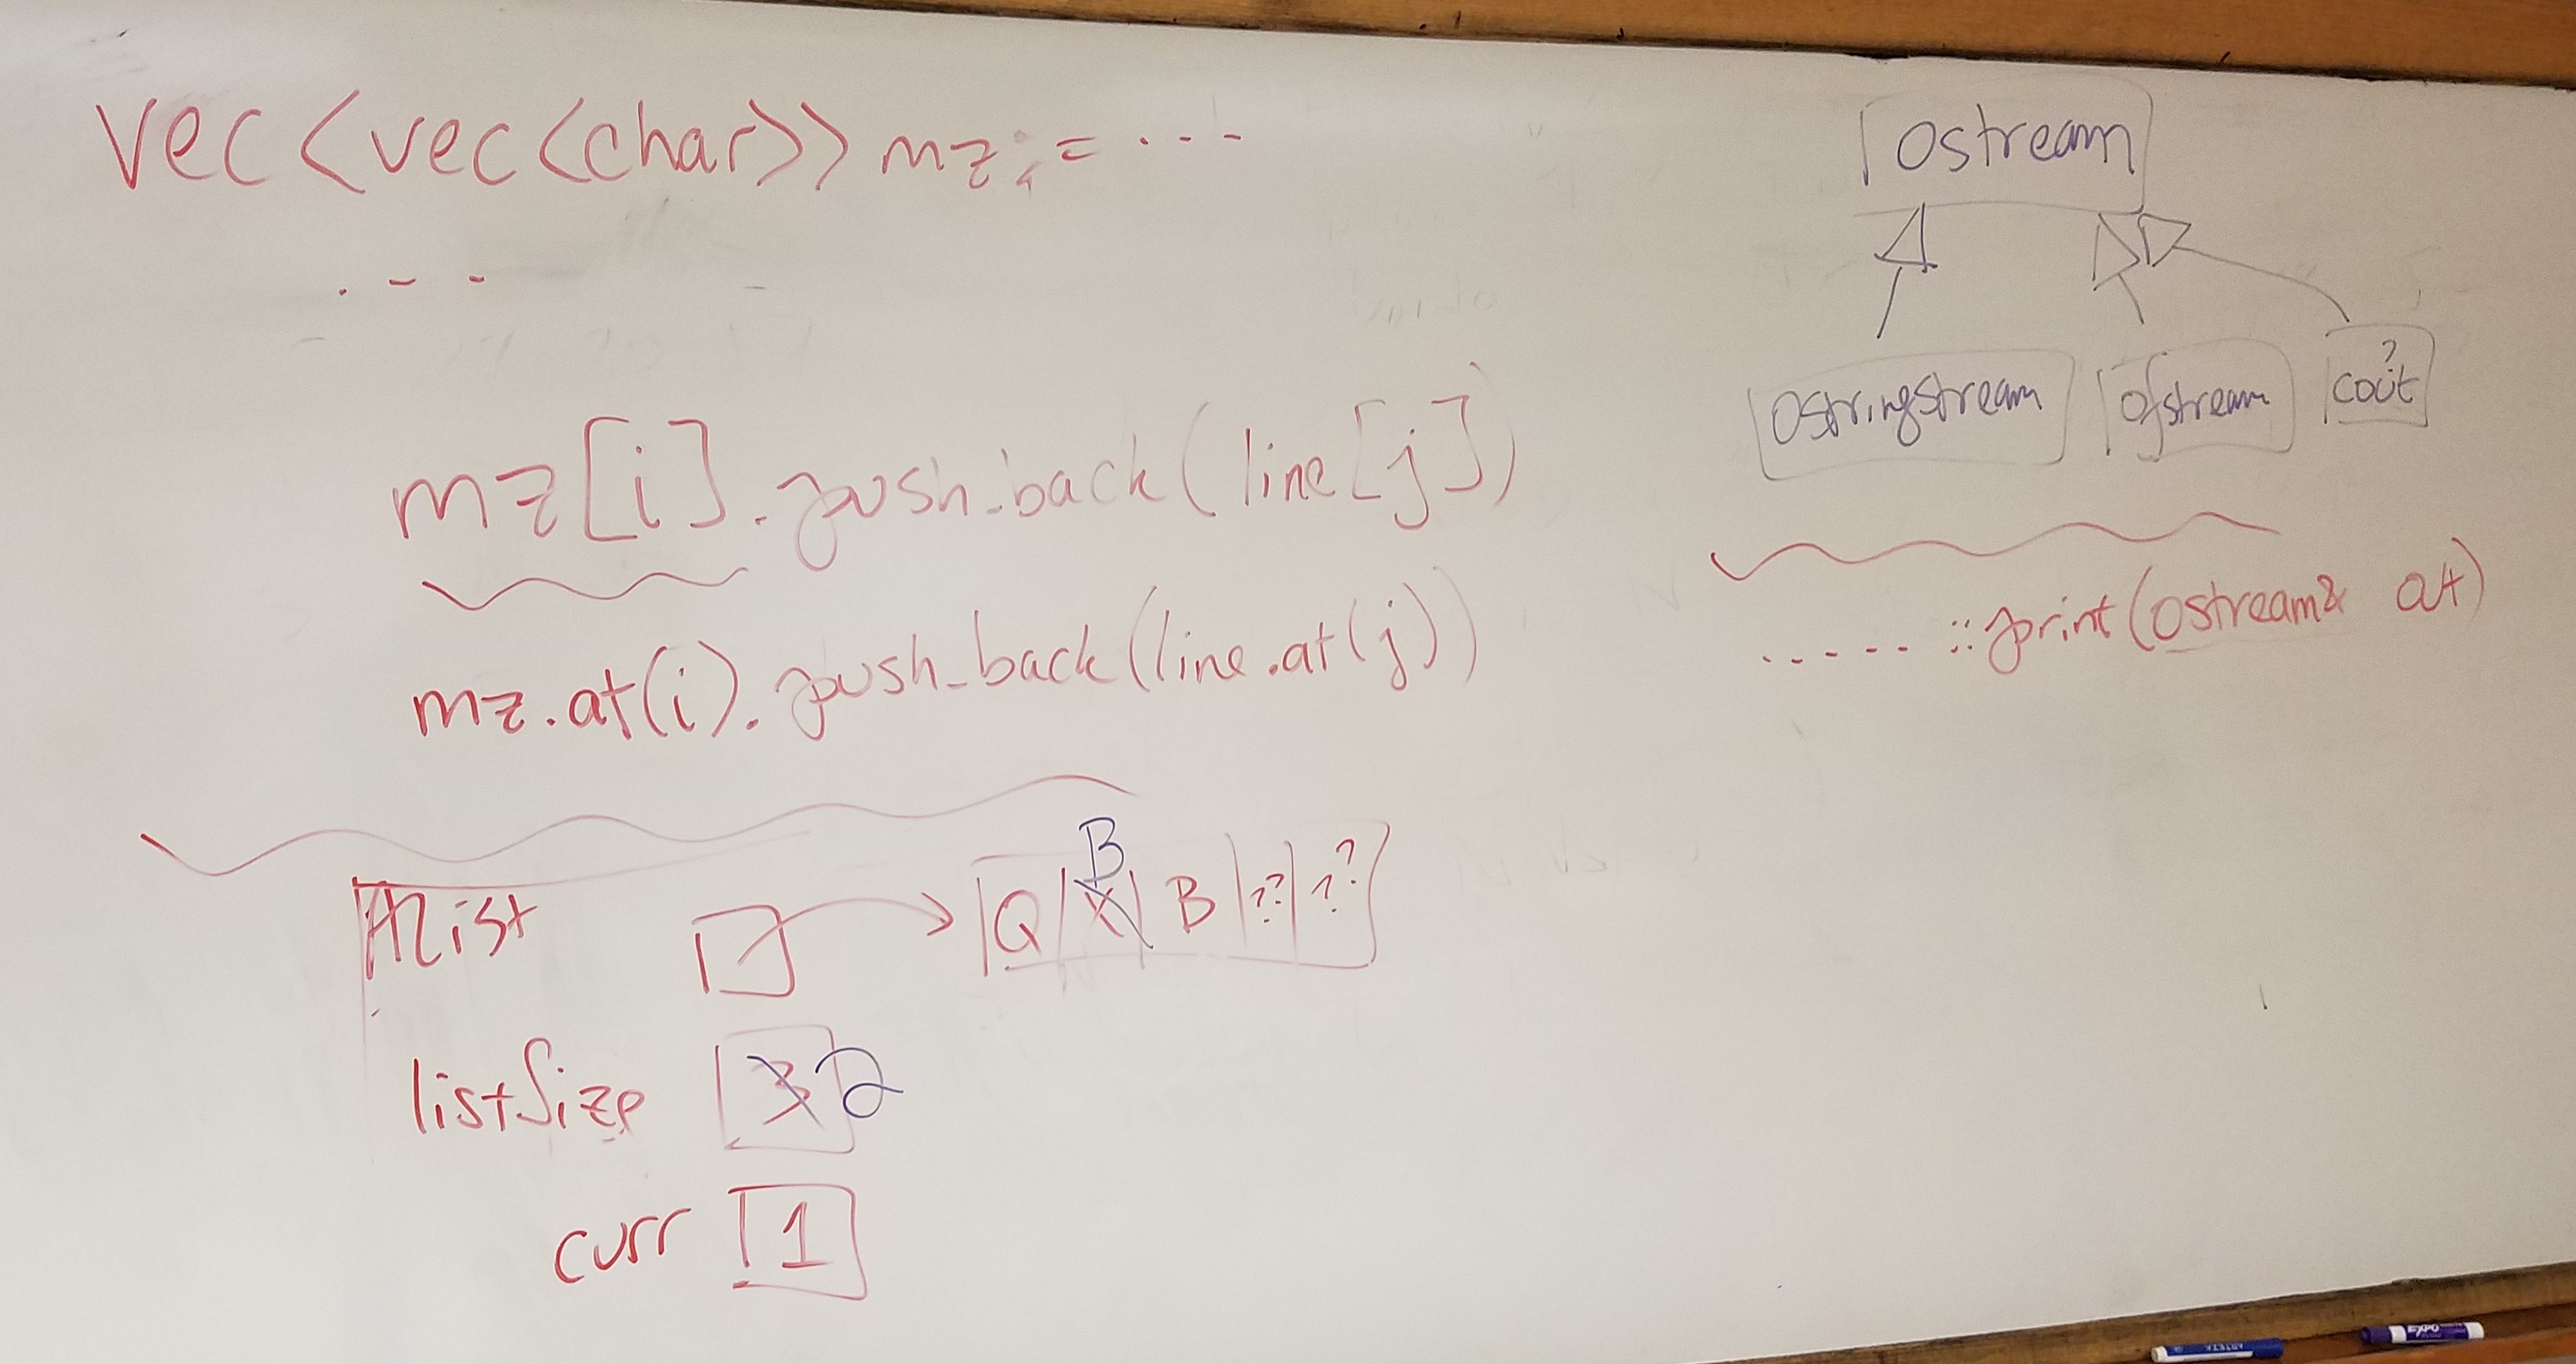 vec<vec<char>> mz;= ...
...
mz[i].push_back(line[j])
mz.at(i).push_back(line.at(j))
Alist
B
Q X B ?? ??
listSize 3 2
curr 1
ostream
ostringstream ofstream cout ?
.....::print(ostream& out)
EXPO